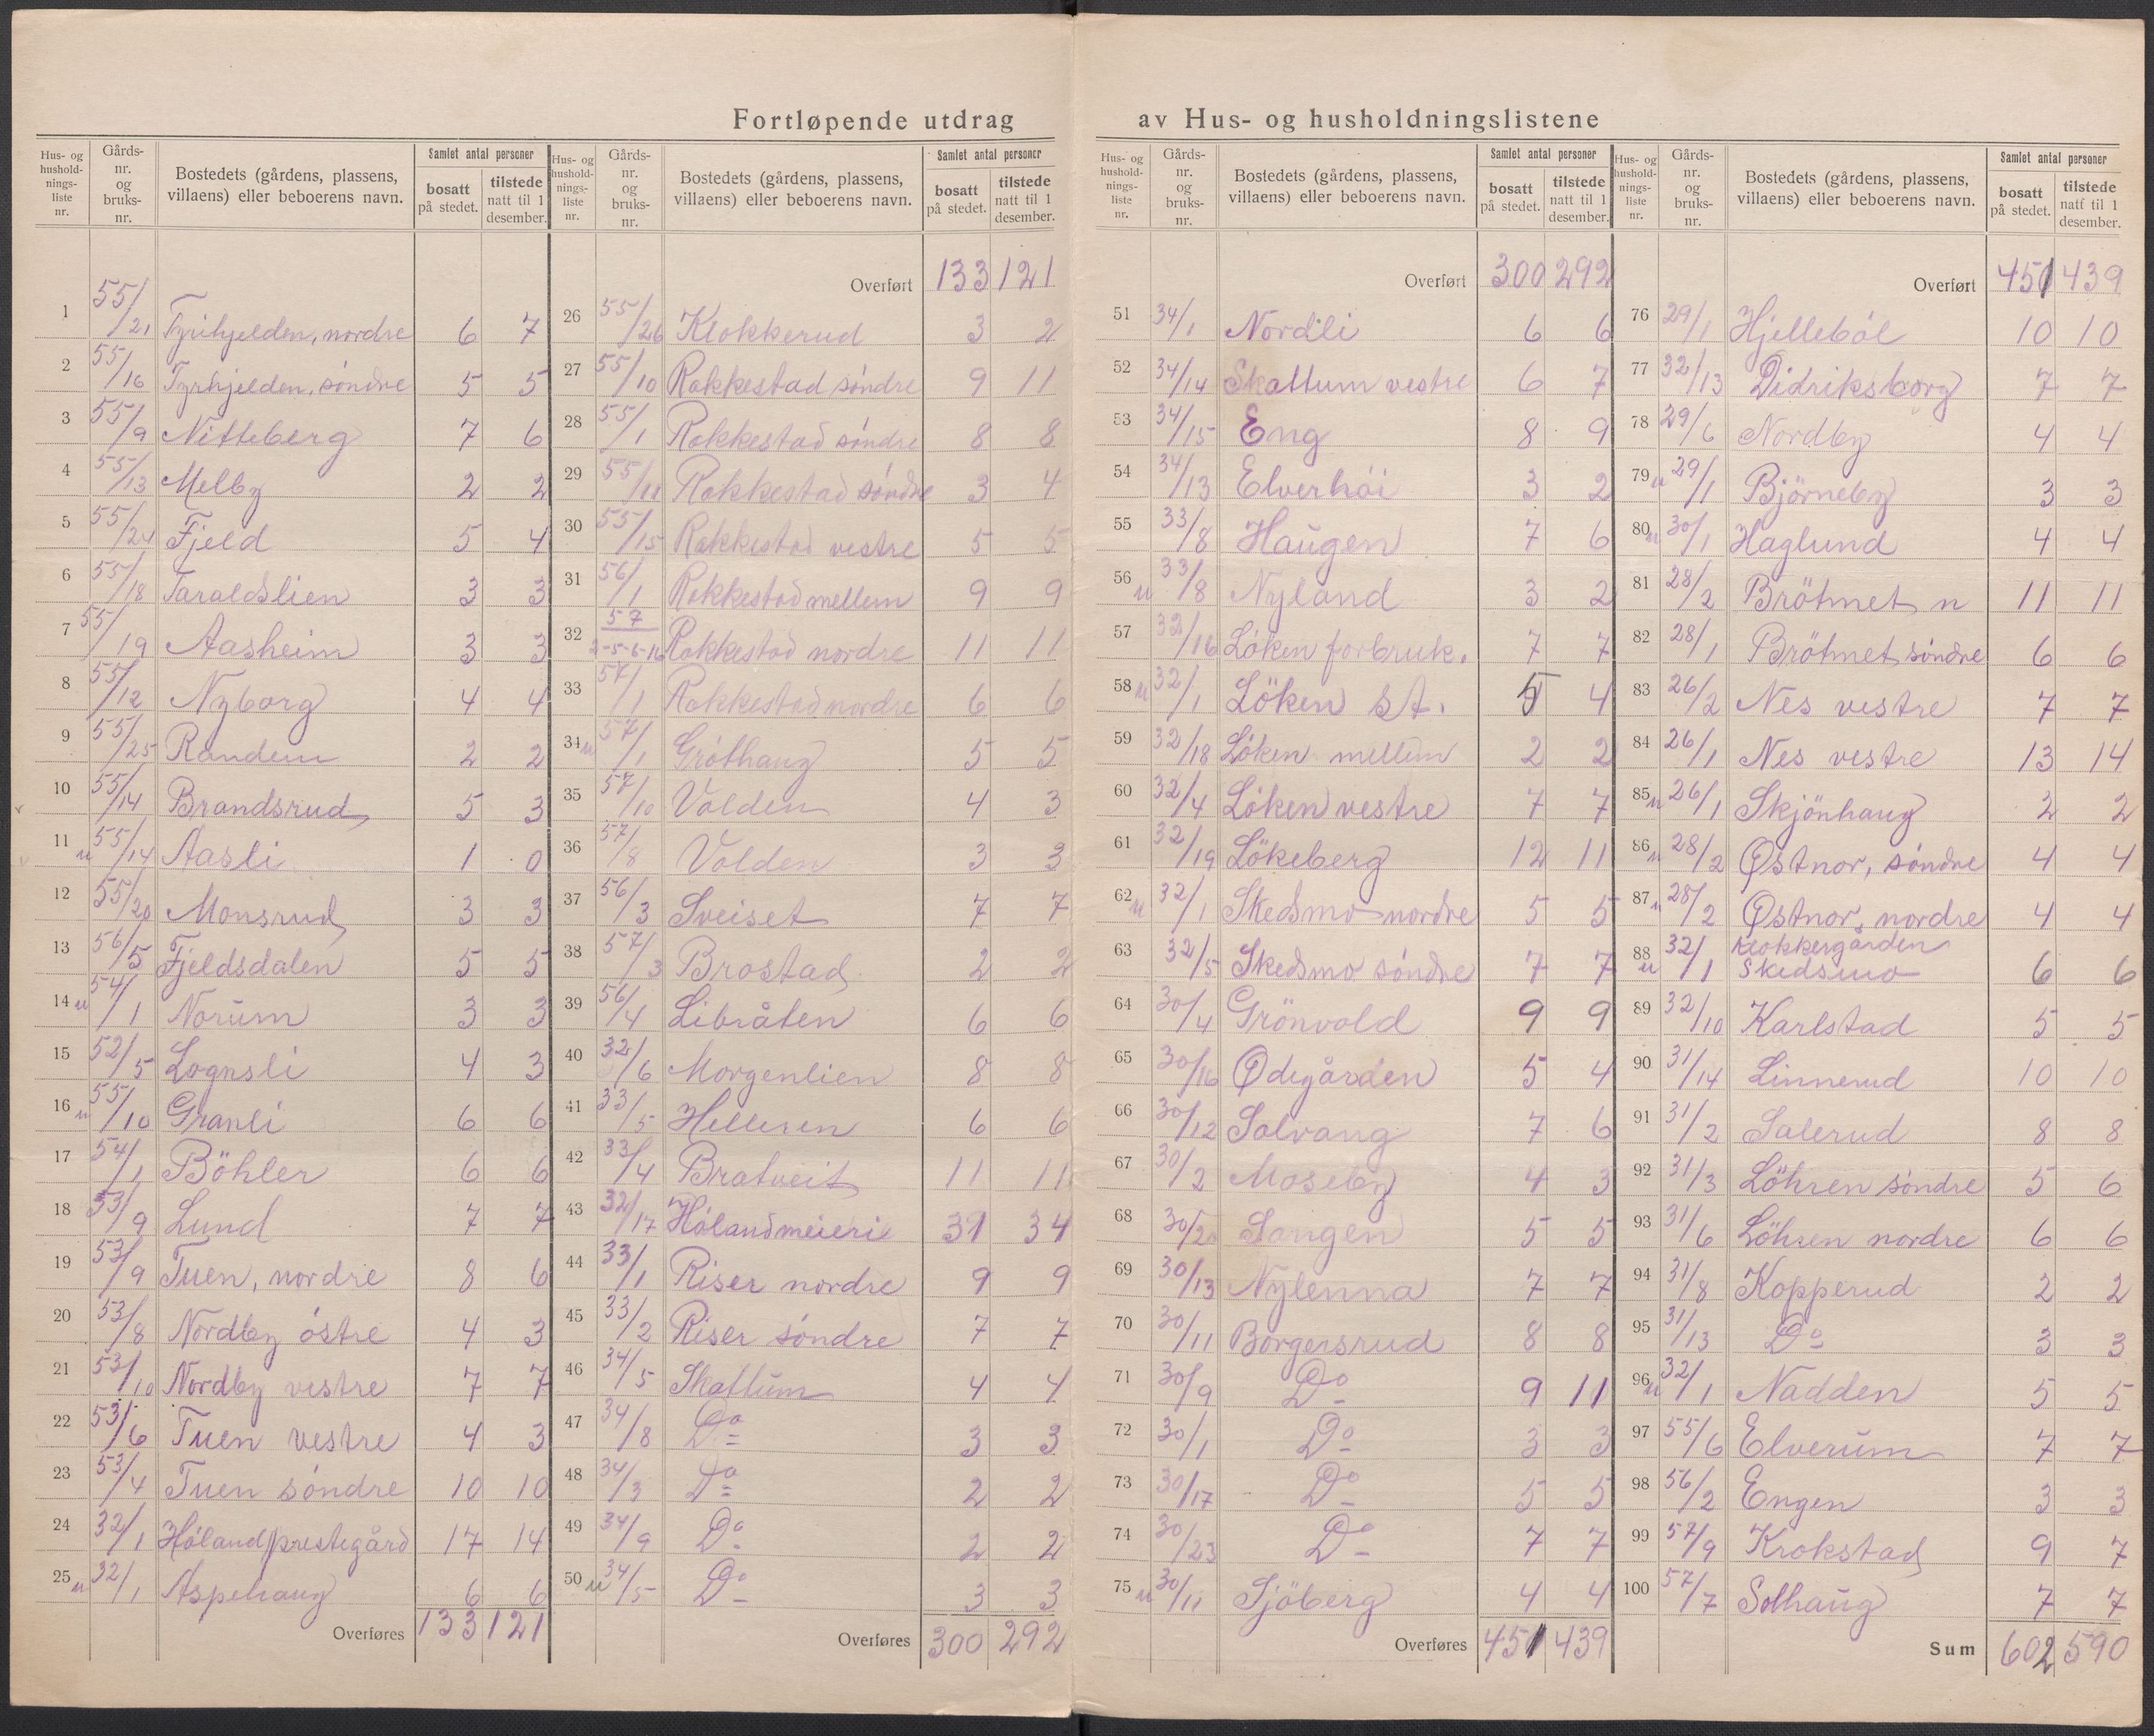 Fortløpende utdrag av Hus- og husholdningslistene
Hus- og husholdningsliste nr. Gårds- nr. og bruks- nr. Bostedets (gårdens, plassens, villaens) eller beboerens navn. Samlet antal personer bosatt på stedet. tilstede natt til 1 desember.
1 55/21 Tyrihjelden, nordre 6 7
2 55/16 Tyrihjelden, söndre 5 5
3 55/9 Nitteberg 7 6
4 55/13 Melby 2 2
5 55/24 Fjeld 5 4
6 55/18 Taraldslien 3 3
7 55/19 Aasheim 3 3
8 55/12 Nyborg 4 4
9 55/25 Randem 2 2
10 55/14 Brandsrud 5 3
11 u 55/14 Aasli 1 0
12 55/20 Monsrud 3 3
13 56/5 Fjeldsdalen 5 5
14 u 54/1 Norum 3 3
15 52/5 Lognsli 4 3
16 u 55/10 Granli 6 6
17 54/1 Böhler 6 6
18 53/9 Lund 7 7
19 53/9 Tuen, nordre 8 6
20 53/8 Nordby östre 4 3
21 53/10 Nordby vestre 7 7
22 53/6 Tuen vestre 4 3
23 53/4 Tuen söndre 10 10
24 32/1 Höland prestegård 17 14
25 u 32/1 Aspehaug 6 6
Overføres 133 121
Hus- og husholdningsliste nr. Gårds- nr. og bruks- nr. Bostedets (gårdens, plassens, villaens) eller beboerens navn. Samlet antal personer bosatt på stedet. tilstede natt til 1 desember.
Overført 133 121
26 55/26 Klokkerud 3 2
27 55/10 Rakkestad söndre 9 11
28 55/1 Rakkestad söndre 8 8
29 55/11 Rakkestad söndre 3 4
30 55/15 Rakkestad vestre 5 5
31 56/1 Rakkestad mellem 9 9
32 57/2-5-6-16 Rakkestad nordre 11 11
33 57/1 Rakkestad nordre 6 6
34 u 57/1 Gröthaug 5 5
35 57/10 Volden 4 3
36 57/8 Volden 3 3
37 56/3 Sveiset 7 7
38 57/3 Brostad 2 2
39 56/4 Libråten 6 6
40 32/6 Morgenlien 8 8
41 33/5 Helleren 6 6
42 33/4 Bratveit 11 11
43 32/17 Höland meieri 31 34
44 33/1 Riser nordre 9 9
45 33/2 Riser söndre 7 7
46 34/5 Skattum 4 4
47 34/8 Do 3 3
48 34/3 Do 2 2
49 34/9 Do 2 2
50 u 34/5 Do 3 3
Overføres 300 292
Hus- og husholdningsliste nr. Gårds- nr. og bruks- nr. Bostedets (gårdens, plassens, villaens) eller beboerens navn. Samlet antal personer bosatt på stedet. tilstede natt til 1 desember.
Overført 300 292
51 34/1 Nordli 6 6
52 34/14 Skattum vestre 6 7
53 34/15 Eng 8 9
54 34/13 Elverhöi 3 2
55 33/8 Haugen 7 6
56 u 33/8 Nyland 3 2
57 32/16 Löken forbruk. 7 7
58 u 32/1 Löken st. 5 4
59 32/18 Löken mellem 2 2
60 32/4 Löken vestre 7 7
61 32/19 Lökeberg 12 11
62 u 32/1 Skedsmo nordre 5 5
63 32/5 Skedsmo söndre 7 7
64 30/4 Grönvold 9 9
65 30/16 Ødegården 5 4
66 30/12 Solvang 7 6
67 30/2 Moseby 4 3
68 30/20 Sangen 5 5
69 30/13 Nylenna 7 7
70 30/11 Borgersrud 8 8
71 30/9 Do 9 11
72 30/1 Do 3 3
73 30/17 Do 5 5
74 30/23 Do 7 7
75 u 30/11 Sjöberg 4 4
Overføres 451 439
Hus- og husholdningsliste nr. Gårds- nr. og bruks- nr. Bostedets (gårdens, plassens, villaens) eller beboerens navn. Samlet antal personer bosatt på stedet. tilstede natt til 1 desember.
Overført 451 439
76 29/1 Hjelleböl 10 10
77 32/13 Didriksborg 7 7
78 29/6 Nordby 4 4
79 u 29/1 Björneby 3 3
80 u 30/1 Haglund 4 4
81 28/2 Brötmet n 11 11
82 28/1 Brötmet söndre 6 6
83 26/2 Nes vestre 7 7
84 26/1 Nes vestre 13 14
85 u 26/1 Skjönhaug 2 2
86 u 28/2 Østnor, söndre 4 4
87 u 28/2 Østnor, nordre 4 4
88 u 32/1 Klokkergården Skedsmo 6 6
89 32/10 Karlstad 5 5
90 31/14 Linnerud 10 10
91 31/2 Salerud 8 8
92 31/3 Löhren söndre 5 6
93 31/6 Löhren nordre 6 6
94 31/8 Kopperud 2 2
95 31/13 Do 3 3
96 u 32/1 Nadden 5 5
97 55/6 Elverum 7 7
98 56/2 Engen 3 3
99 57/9 Krokstad 9 7
100 57/7 Solhaug 7 7
Sum 602 590